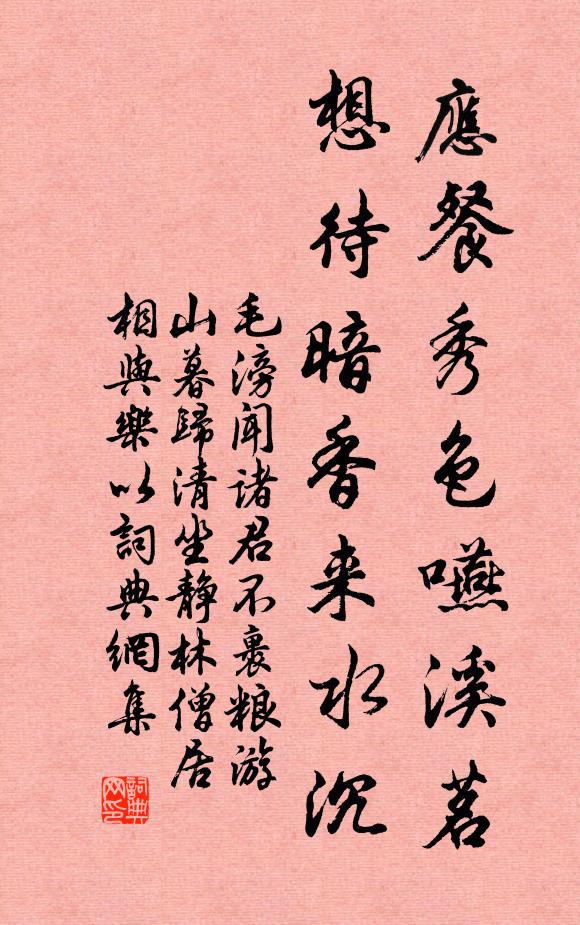 應餐秀色嚥溪茗
想待暗香来水沉
毛滂闻诸君不裹粮游
山暮歸清坐静林僧居
相與樂以詞典網集
詞典网印